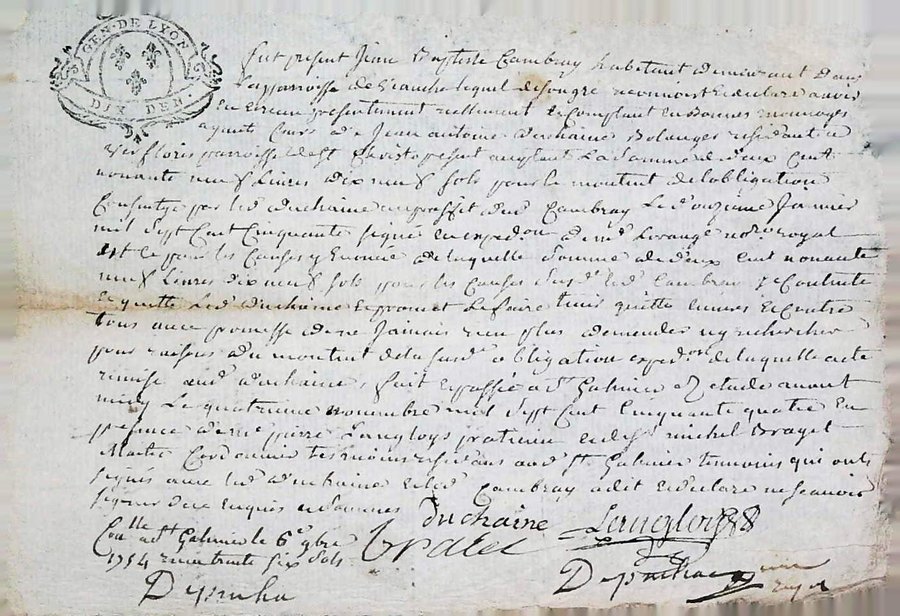 GEN. DE LYON
DIX DEN.
fut présent Jean Baptiste Cambray habitant
la parroisse de lequel de son gré reconnoit et declare avoir
reçu presentement reellement et comptant en bonnes monnoyes
ayants cours de Jean antoine duchaine Bolanger residant a
parroisse de st Christo present acceptant La Somme de deux Cent
nonante neuf Livres dix neuf sols pour le montent de lobligation
Consentye par led duchaine au proffit dud Cambray Le Janvier
mil sept Cent Cinquante signée en expedon de me nore royal
et ce pour les Causes y Enoncée de laquelle somme de deux Cent nonante
neuf Livres dix neuf sols pour les Causes susd led Cambray se Contente
et quitte Led duchaine et promet Le faire tenir quitte envers et Contre
tous avec promesse de ne Jamais rien plus demender ny rechercher
pour raisons du montent de la susd obligation expedon de laquelle a ete
remise aud duchaine, fait et passé a st Galmier Etude avant
midy Le quatrieme novembre mil sept Cent Cinquante quatre En
presence de me pierre Langloys praticien et de sr michel Bragel
Maitre Cordonnier temoins residans aud st Galmier temoins qui ont
signés avec led duchaine et led Cambray a dit et declare ne scavoir
signer de ce enquis et
duchaine Langloys
Conllé a st Galmier le 6e 9bre
1754 recu trente six sols